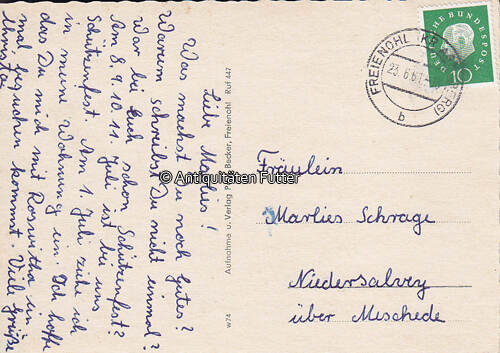 Liebe Marlies!
Was machst Du noch Gutes?
Warum schreibst Du nicht einmal?
War bei Euch schon Schützenfest?
Am 8. 9. 10. 11. Juli ist bei uns
Schützenfest. Am 1. Juli ziehe ich
in meine Wohnung ein. Ich hoffe
das Du mich mit Roswitha in
mal besuchen kommt. Viele Grüße
Christa
Aufnahme u. Verlag Becker, Freienohl Ruf 447
w74
© Antiquitäten Futter
DEUTSCHE BUNDESPOST
10
FREIENOHL (KR
BERG)
23.6.61
b
Fräulein
Marlies Schrage
Niedersalvey
über Meschede